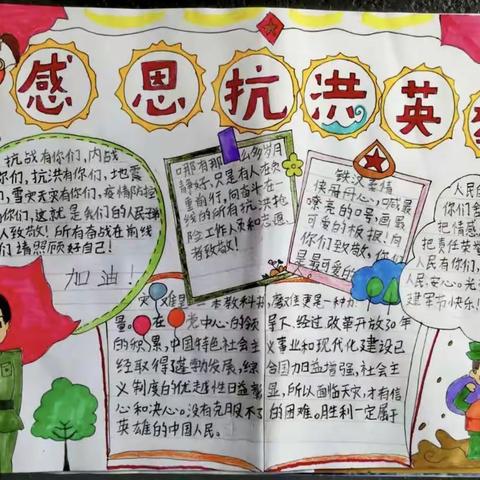 感恩抗洪英
抗战有你们,内战
你们,抗洪有你们,地震
们,雪灾天灾有你们,疫情防控
你们,这就是我们的人民子弟
人致敬!所有奋战在前线
们请照顾好自己!
加油!
哪有那么多岁月
静好,只是有人在负
重前行,向奋斗在一
线的所有抗洪抢
险工作人员和志愿
者致敬!
铁汉柔情
侠肝丹心,喊最
嘹亮的口号,画最
可爱的板报!向
你们致敬,你们
是最可爱的
人民的
你们
把情感
把责任举
人民有你们,
民,安心。光
建军节快乐!
灾难是一本教科书,凝聚更是一种力
量。在党中心的领导下,经过改革开放30年
的积累,中国特色社会主义事业和现代化建设已
经取得蓬勃发展,综合国力日益增强,社会主
义制度的优越性日益彰显,所以面临天灾,才有信
心和决心。没有克服不了的困难。胜利一定属于
英雄的中国人民。